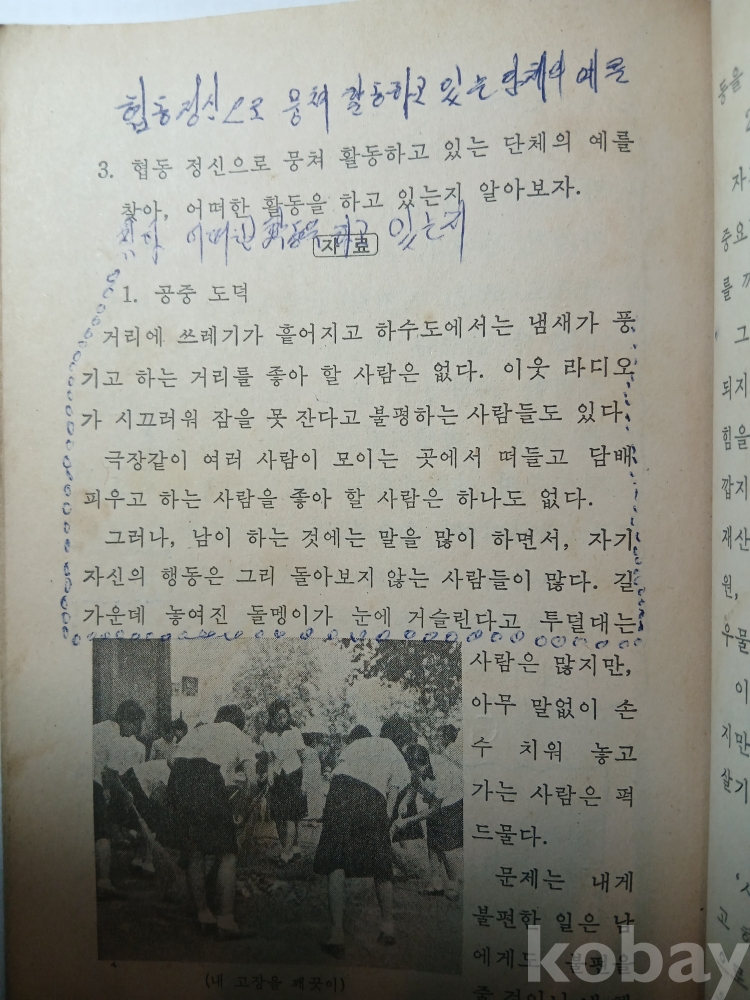 협동정신으로 뭉쳐 활동하고 있는 단체의 예를
3. 협동 정신으로 뭉쳐 활동하고 있는 단체의 예를
찾아, 어떠한 활동을 하고 있는지 알아보자.
찾아 어떠한 활동을 하고 있는지
자 료
1. 공중 도덕
거리에 쓰레기가 흩어지고 하수도에서는 냄새가 풍
기고 하는 거리를 좋아 할 사람은 없다. 이웃 라디오
가 시끄러워 잠을 못 잔다고 불평하는 사람들도 있다.
극장같이 여러 사람이 모이는 곳에서 떠들고 담배
피우고 하는 사람을 좋아 할 사람은 하나도 없다.
그러나, 남이 하는 것에는 말을 많이 하면서, 자기
자신의 행동은 그리 돌아보지 않는 사람들이 많다. 길
가운데 놓여진 돌멩이가 눈에 거슬린다고 투덜대는
사람은 많지만,
아무 말없이 손
수 치워 놓고
가는 사람은 퍽
드물다.
문제는 내게
불편한 일은 남
에게도 불편을
(내 고장을 깨끗이)
동을
자
중요
를
그
되지
힘을
깝지
재산
원,
우물
이
지만
살기
고
kobay